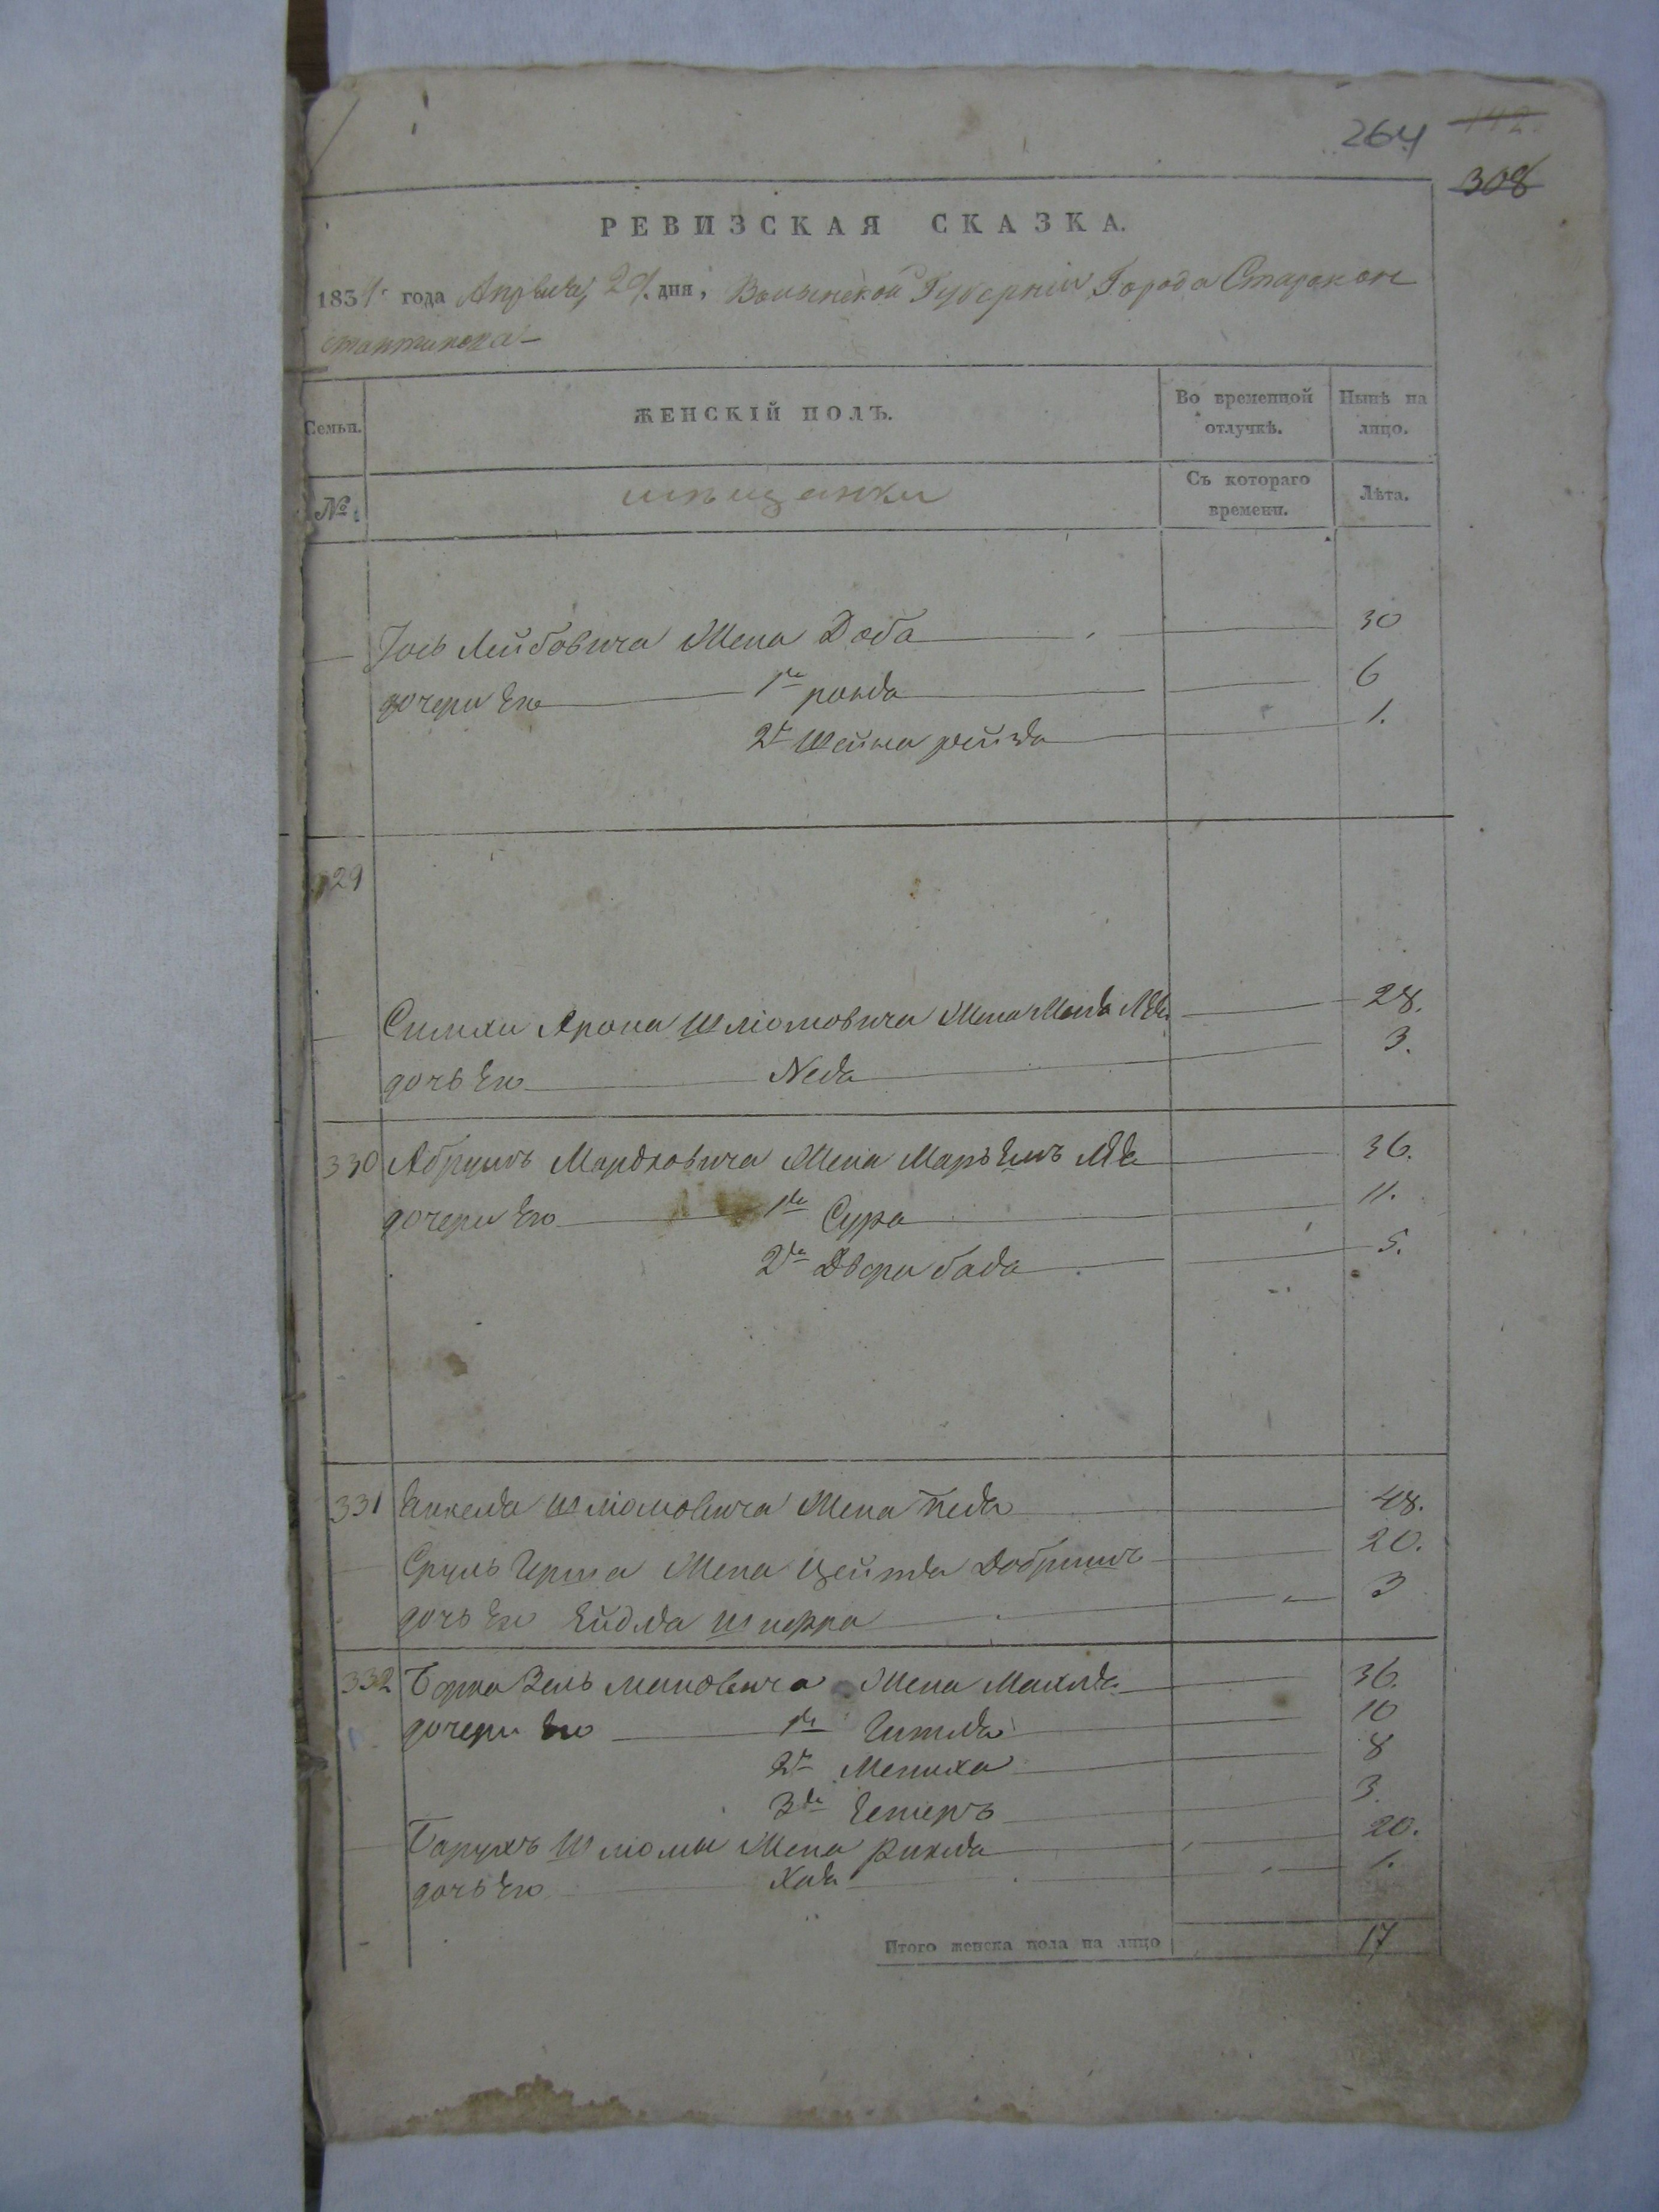 264 142.
308
РЕВИЗСКАЯ СКАЗКА.
1834 года Апреля 29. дня, Волынской Губерніи Города Старокон
стантинова –
Семьи. ЖЕНСКІЙ ПОЛЪ. Во временной отлучкѣ. Нынѣ на лицо.
№. мѣщанки Съ котораго времени. Лѣта.
Іось Лейбовича Жена Доба 30
дочери Его 1я 6
2я Шейна рейзя 1.
29
Симхи Арона Шліомовича Жена 28.
дочь Его 3.
330 Абрумъ Мордковича Жена Марьемъ 36.
дочери Его 1я Сура 11.
2я Двера баба 5.
331 Янкеля Шліомовича Жена 48.
Сруль Герша Жена Цейтля Добришъ 20.
дочь Его Ейдля Шифра 3
332 Борка Зельмановича Жена Махля 36.
дочери Его 1я Гитля 10
2я Мениха 8
3я Естеръ 3.
Барухъ Шліомы Жена Рикля 20.
дочь Его Хая 1.
Итого женска пола на лицо 17